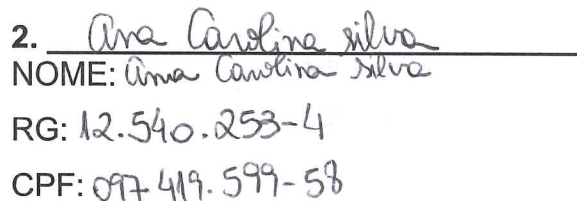 2. Ana Carolina silva
NOME: Ana Carolina silva
RG: 12.540.253-4
CPF: 097.419.599-58